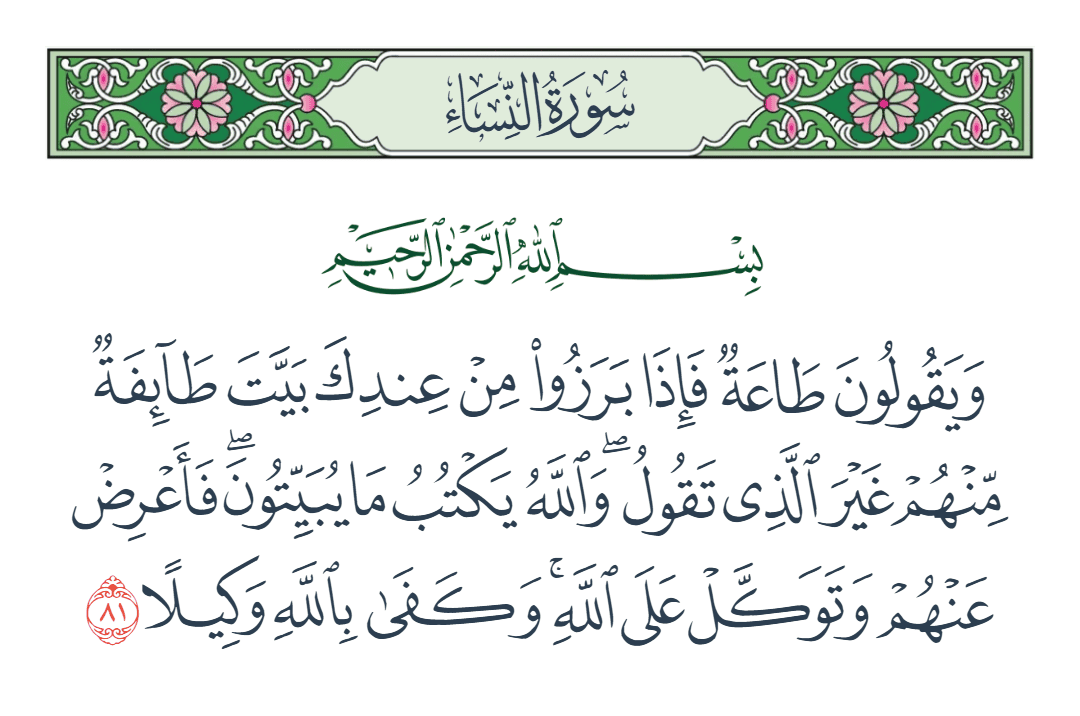 سُورَةُ النِّسَاءِ
بِسْمِ ٱللَّهِ ٱلرَّحْمَٰنِ ٱلرَّحِيمِ
وَيَقُولُونَ طَاعَةٌ فَإِذَا بَرَزُوا۟ مِنْ عِندِكَ بَيَّتَ طَآئِفَةٌ
مِّنْهُمْ غَيْرَ ٱلَّذِى تَقُولُ ۖ وَٱللَّهُ يَكْتُبُ مَا يُبَيِّتُونَ ۖ فَأَعْرِضْ
عَنْهُمْ وَتَوَكَّلْ عَلَى ٱللَّهِ ۚ وَكَفَىٰ بِٱللَّهِ وَكِيلًا ٨١